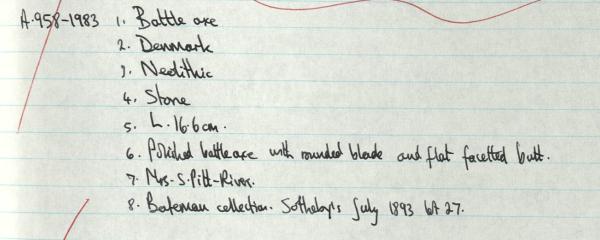 A.958-1983 1. Battle axe
2. Denmark
3. Neolithic
4. Stone
5. L. 16.6cm.
6. Polished battleaxe with rounded blade and flat facetted butt.
7. Mrs. S. Pitt-Rivers.
8. Bateman collection. Sotheby's July 1893 lot 27.